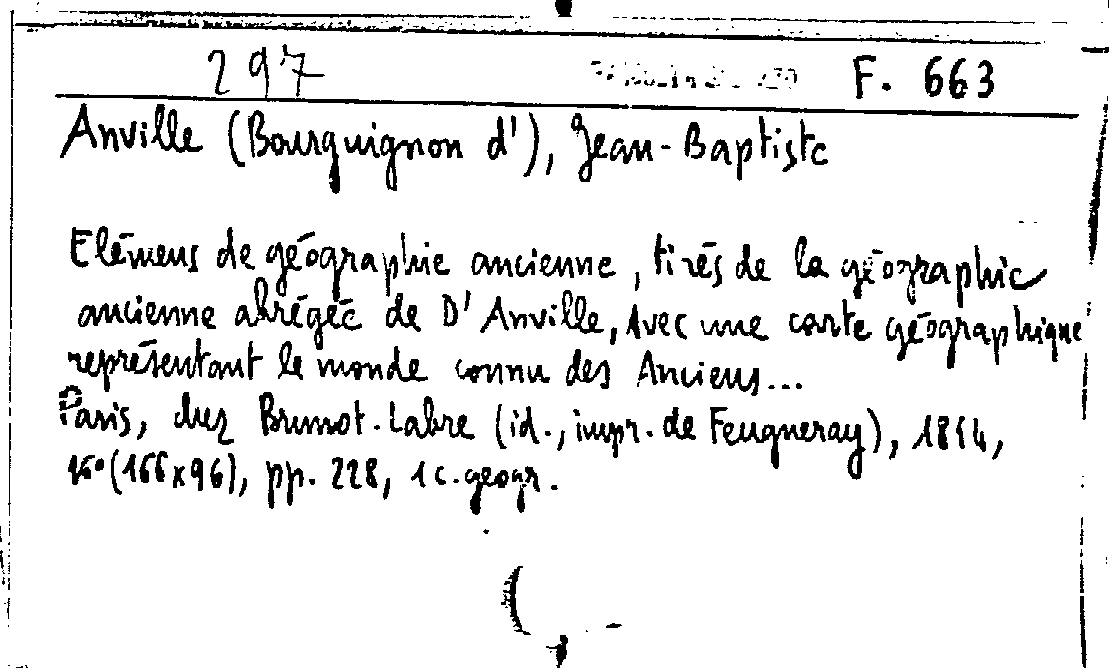 297 F. 663
Anville (Bourguignon d'), Jean-Baptiste
Elémens de géographie ancienne, tirés de la géographie
ancienne abrégée de D'Anville, avec une carte géographique
représentant le monde connu des Anciens...
Paris, chez Brunot-Labre (id., impr. de Feugueray), 1814,
16° (166x96), pp. 228, 1 c. geogr.